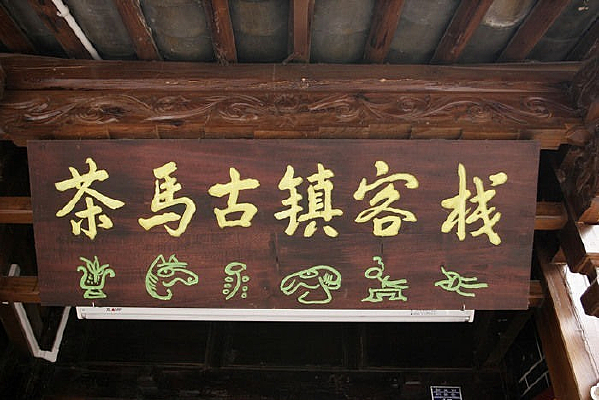 茶马古镇客栈